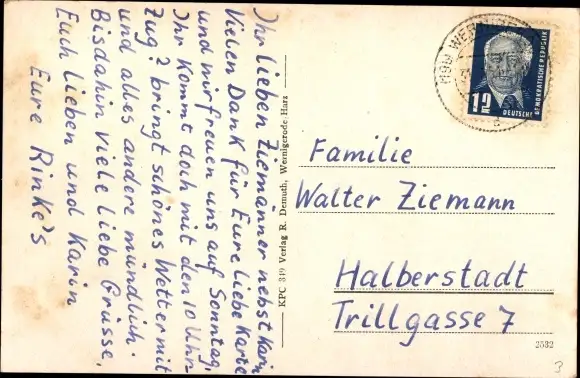 Ihr lieben Ziemänner nebst Karin
Vielen Dank für Eure liebe Karte
und wir freuen uns auf Sonntag.
Ihr kommt doch mit den 10 Uhr
Zug? bringt schönes Wetter mit
und alles andere mündlich.
Bisdahin viele liebe Grüsse,
Euch lieben und Karin
Eure Rinke's
KPC 349 Verlag R. Demuth, Wernigerode-Harz
12
DEUTSCHE
DEMOKRATISCHE REPUBLIK
Familie
Walter Ziemann
Halberstadt
Trillgasse 7
2532
3